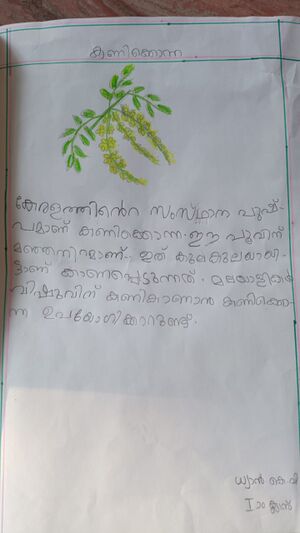 കണിക്കൊന്ന
കേരളത്തിൻെറ സംസ്ഥാന പുഷ്
പമാണ് കണിക്കൊന്ന. ഈ പൂവിന്
മഞ്ഞനിറമാണ്. ഇത് കുലകുലയായി
ട്ടാണ് കാണപ്പെടുന്നത്. മലയാളികൾ
വിഷുവിന് കണികാണാൻ കണിക്കൊ
ന്ന ഉപയോഗിക്കാറുണ്ട്.
ധ്യാൻ കെ.വി
I ാം ക്ലാസ്